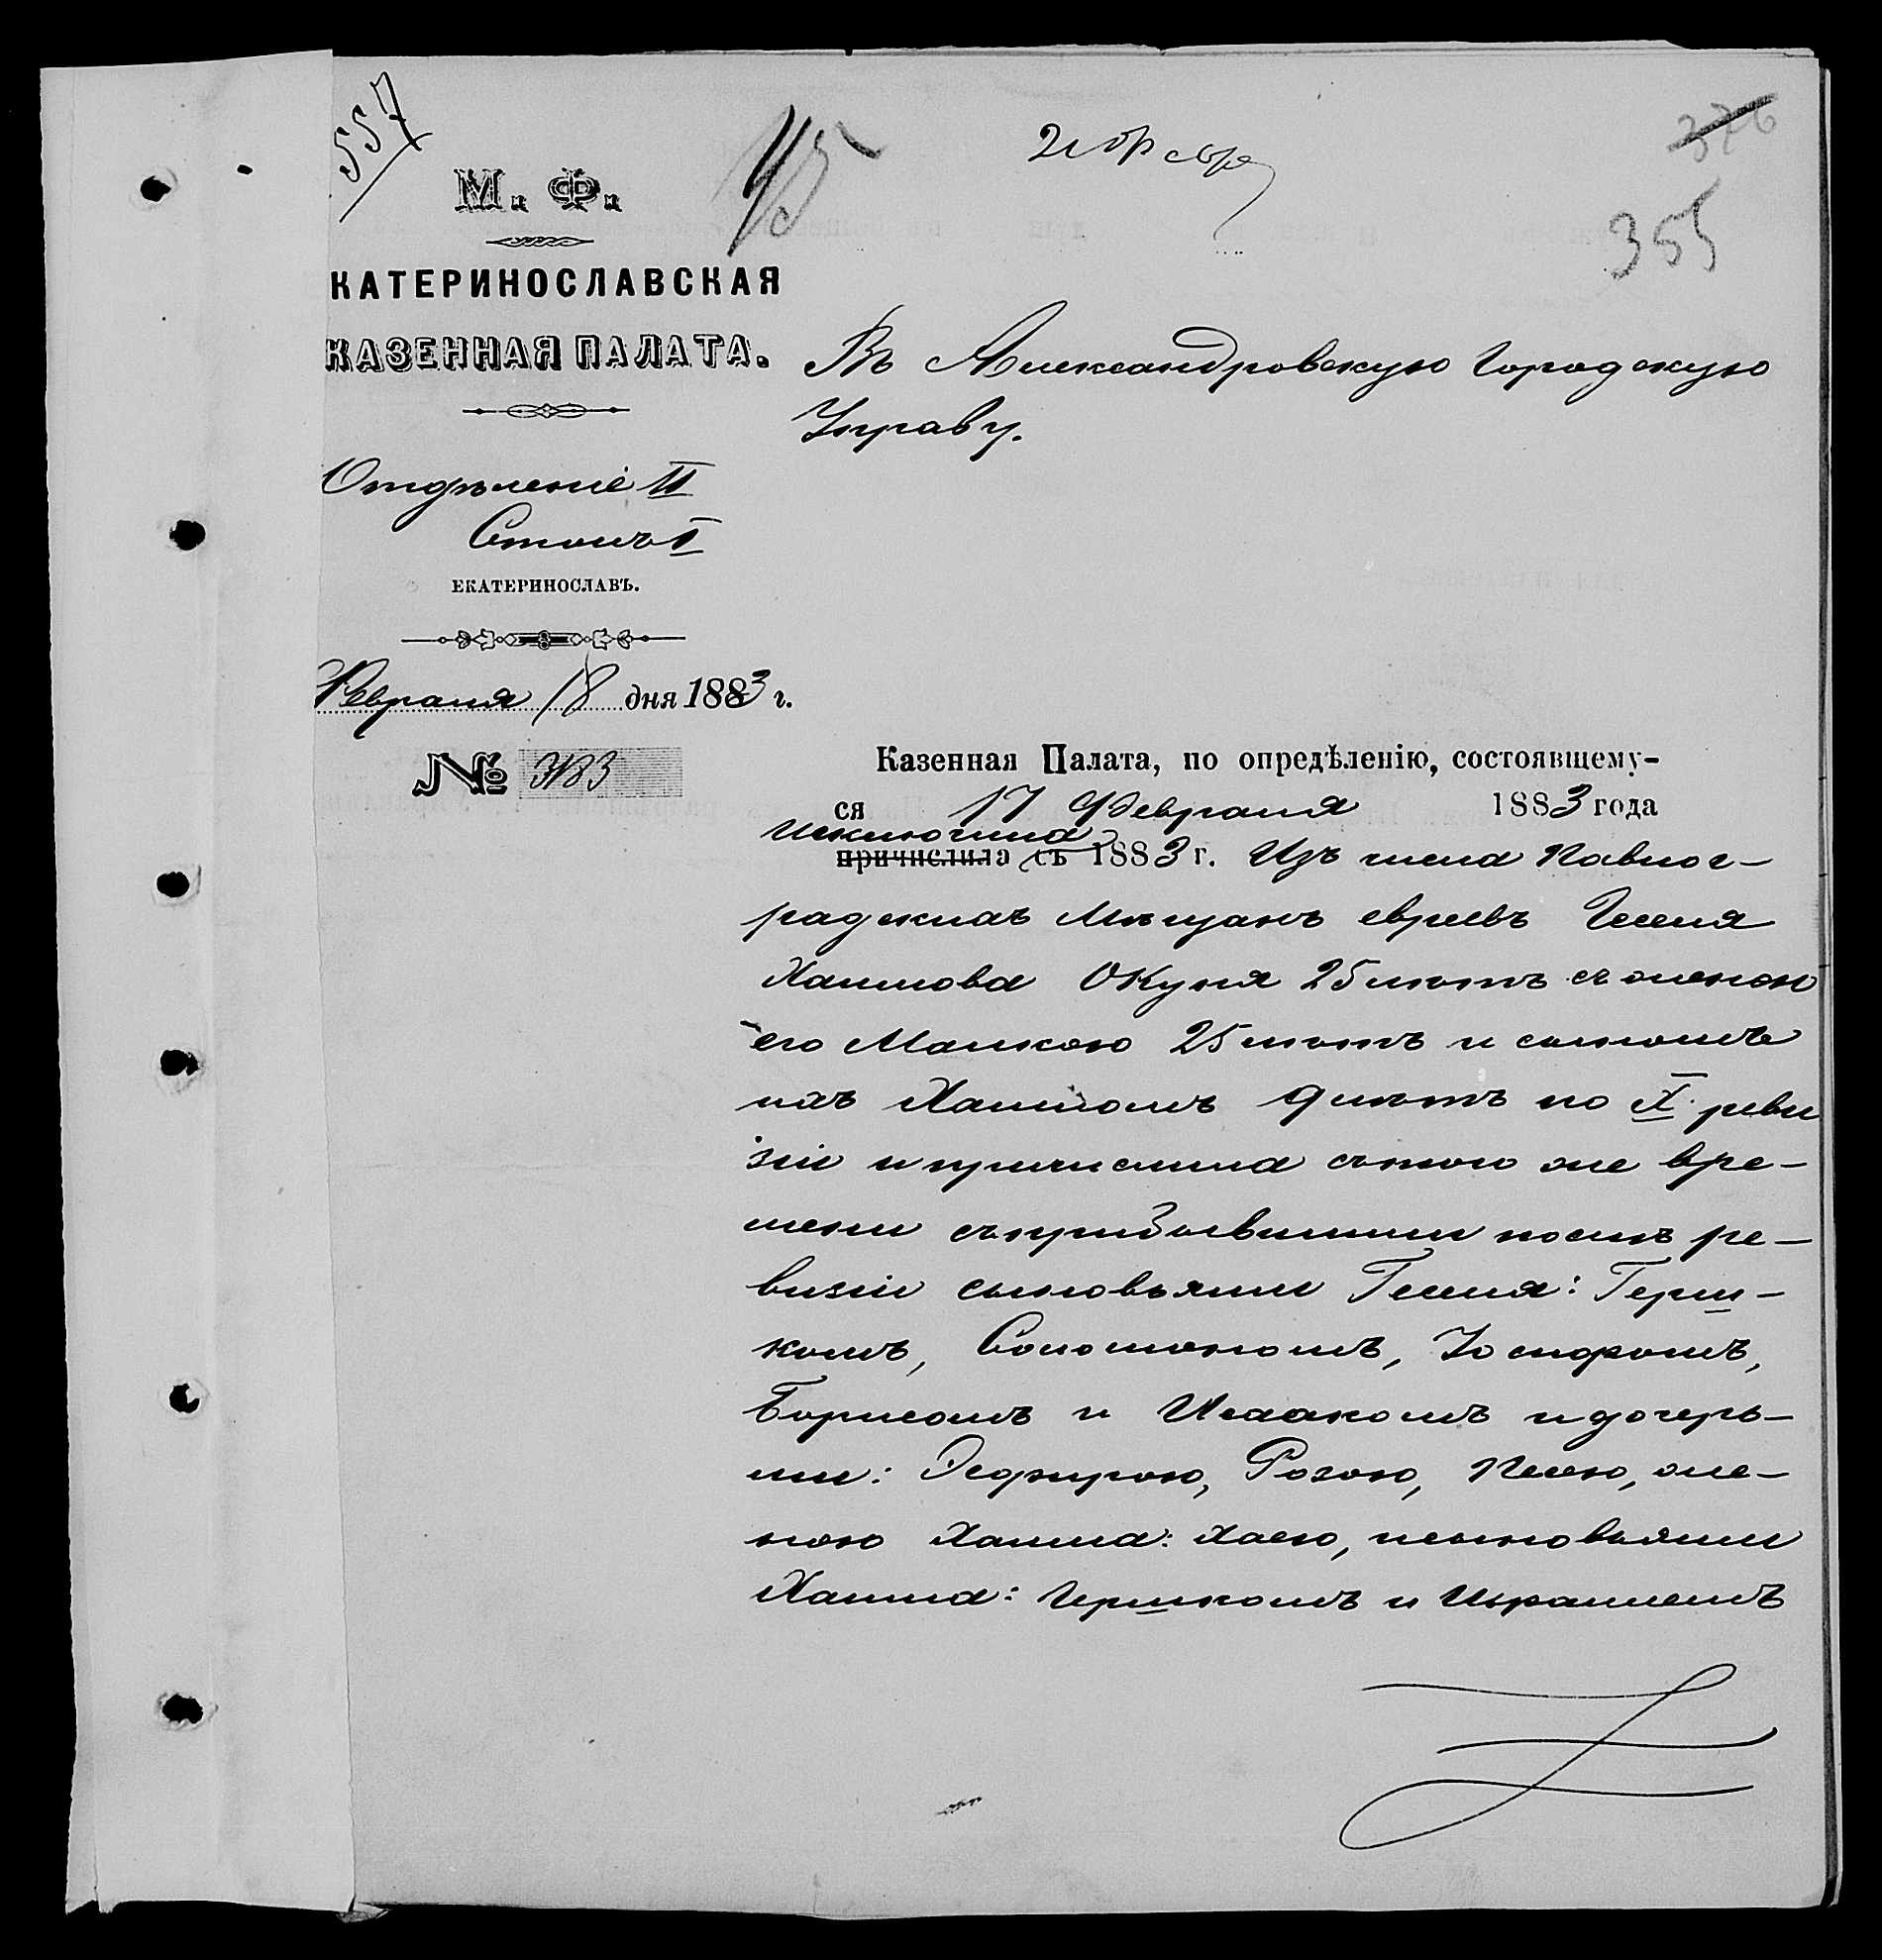 557
45
376
355
М. Ф.
КАТЕРИНОСЛАВСКАЯ
КАЗЕННАЯ ПАЛАТА.
Отдѣленіе II
Столъ I
ЕКАТЕРИНОСЛАВЪ.
Февраля 18 дня 1883 г.
№ 3183
Въ Александровскую Городскую
Управу.
Казенная Палата, по опредѣленію, состоявшему-
ся 17 Февраля 1883 года
исключила
причислила съ 1883 г. Изъ числа Павлог-
радскихъ Мѣщанъ евреевъ Геселя
Хаимова Окуня 25 лѣтъ съ женою
его Малкою 25 лѣтъ и сыномъ
ихъ Хаимомъ 9 лѣтъ по X реви
зіи и причислила съ того же вре-
мени съ прибывшими послѣ ре-
визіи сыновьями Геселя: Герш-
комъ, Соломономъ, Іосифомъ,
Борисомъ и Исаакомъ и дочерь-
ми: Эсфирою, Розою, Песею, же-
ною Хаима: Хаею, и сыновьями
Хаима: Гершкомъ и Израилемъ